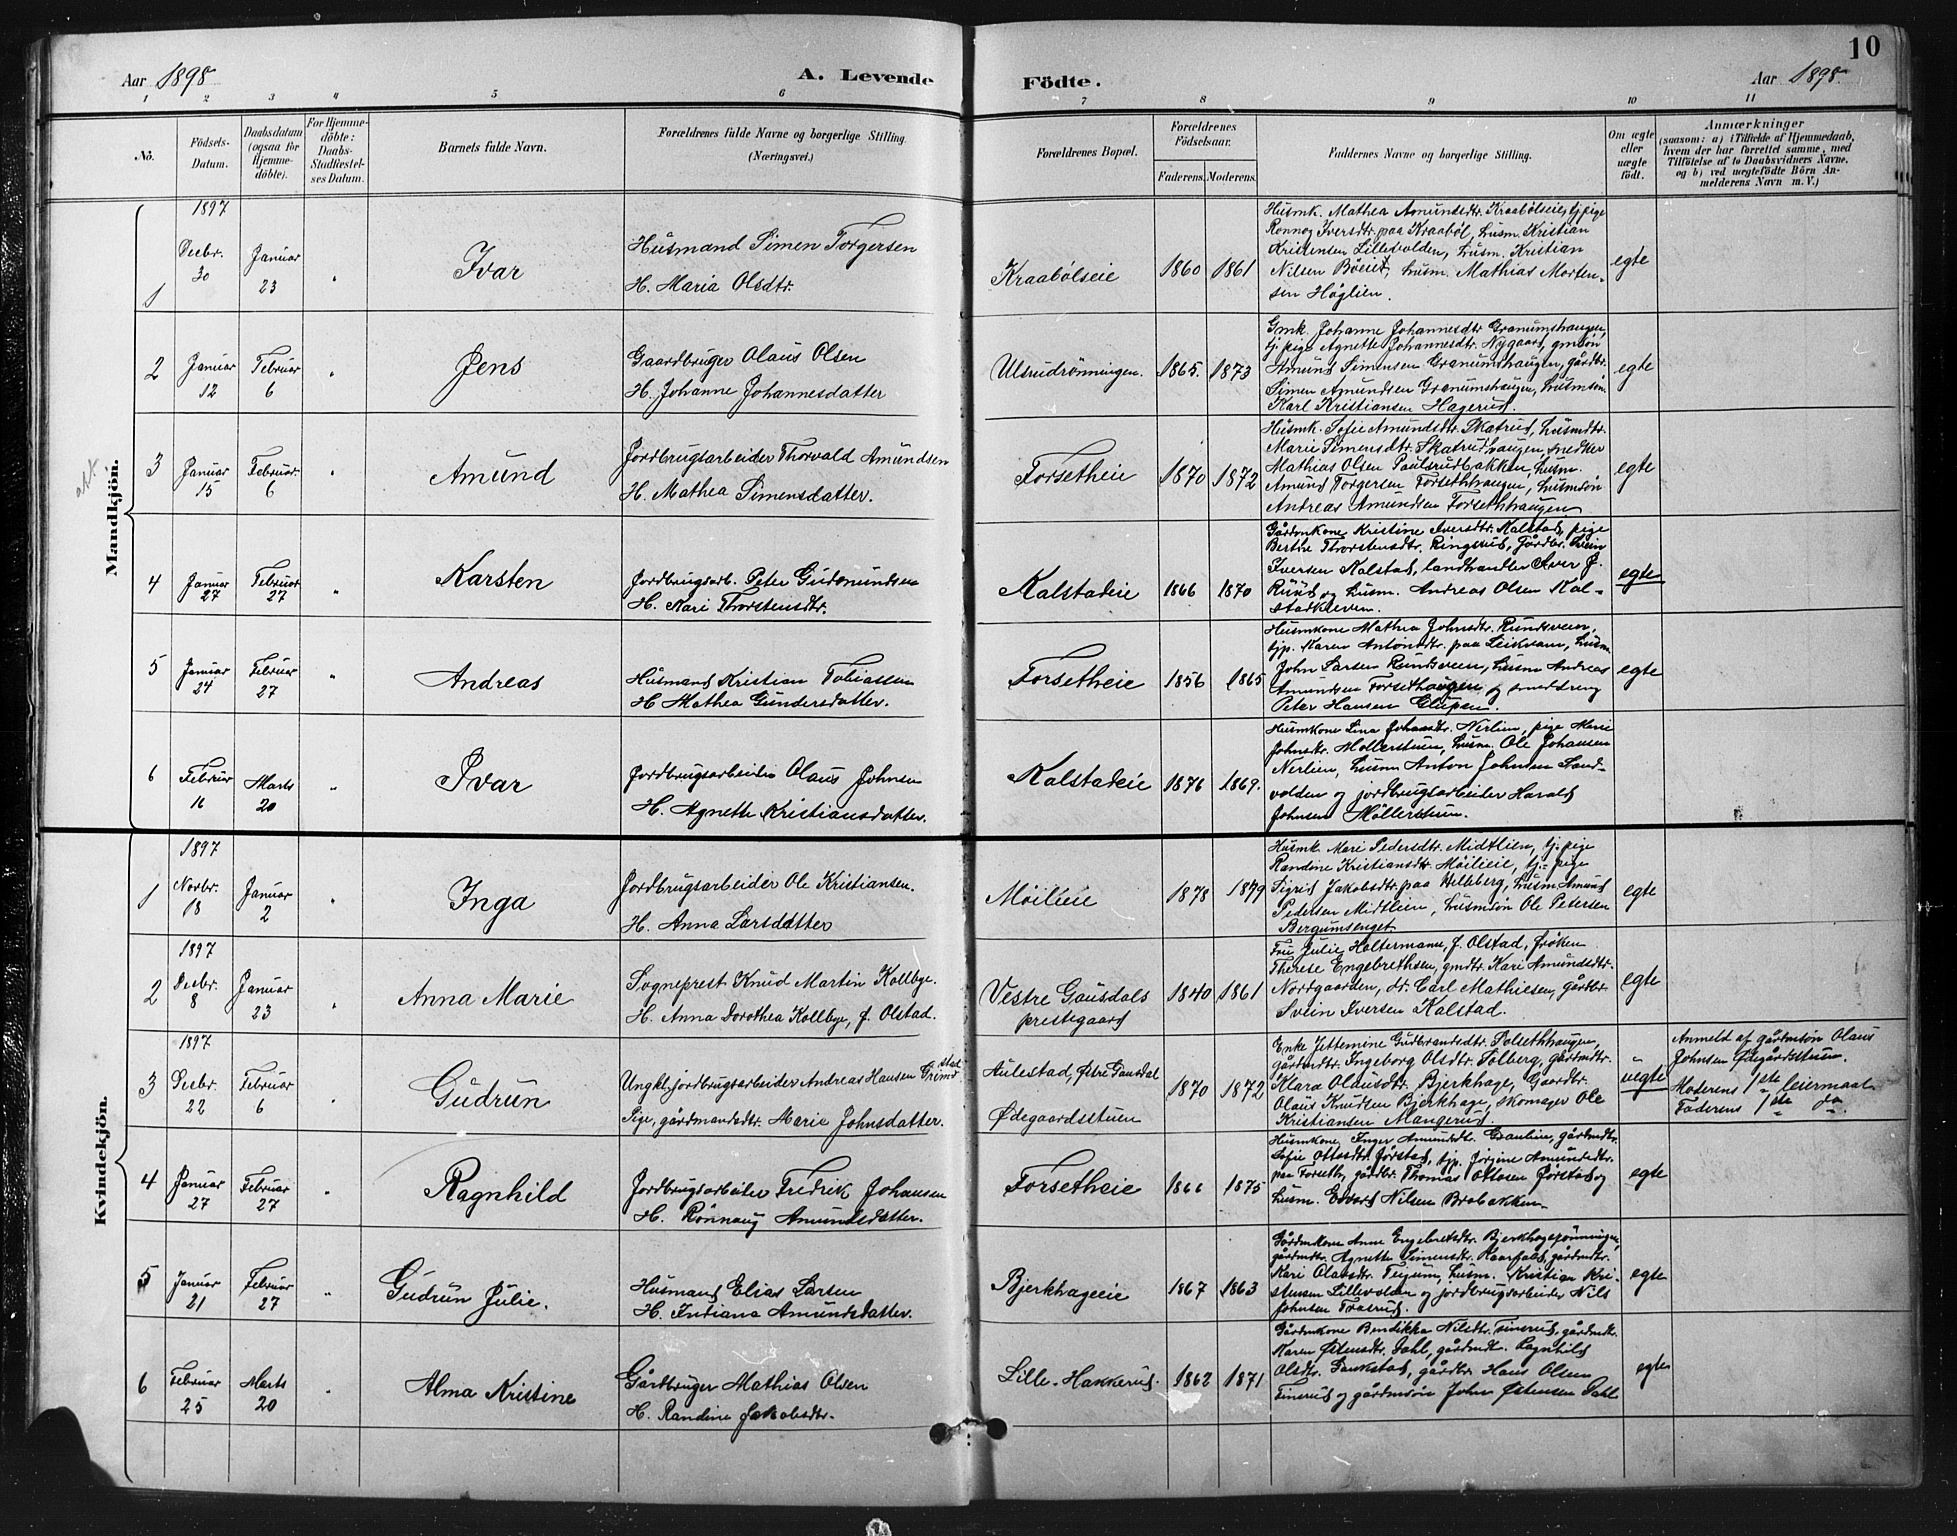 10
Aar 1898
A. Levende Födte.
Aar 1898
1 2 3 4 5 6 7 8 9 10 11
No.
Fødsels-Datum.
Daabsdatum (ogsaa for Hjemme-døbte).
For Hjemme-døbte: Daabs-Stadfæstel-ses Datum.
Barnets fulde Navn.
Forældrenes fulde Navne og borgerlige Stilling (Næringsvei.)
Forældrenes Bopæl.
Forældrenes Fødselsaar.
Faderens. Moderens.
Faddernes Navne og borgerlige Stilling.
Om ægte eller uægte født.
Anmærkninger
(saasom: a) i Tilfælde af Hjemmedaab,
hvem der har forrettet samme, med
Tilføielse af to Daabsvidners Navne.
og b) ved uægtefødte Børn An-
melderens Navn m. V.)
Mandkjön.
1
1897 Decbr. 30
Januar 23
"
Ivar
Husmand Simen Torgersen
H. Maria Olsdtr.
Kraabölseie
1860
1861
Husmk. Mathea Amundsdtr. Kraabölseie, tj. pige
Ronnog Iversdtr. paa Kraaböl, husm. Kristian
Kristensen Lillevolden, husm. Kristian
Nilsen Böeseie, husm. Mathias Morten-
sen Höglien.
egte
2
Januar 12
Februar 6
"
Jens
Gaardbruger Olaus Olsen
H. Johanne Johannesdatter
Ulsrudrönningen.
1865.
1873
Gmk. Johanne Johannesdtr Granumshaugen,
tj. pige Agnette Johannesdtr. Nygaard, gmsön
Amund Simensen Granumshaugen, gårdbr.
Simen Amundsen Granumshaugen, husmsön
Karl Kristiansen Hagerud.
egte
3
Januar 15
Februar 6
"
Amund
Jordbrugsarbeider Thorvald Amundsen
H. Mathea Simensdatter.
Forsetheie
1870
1872
Husmk. Sofie Amundsdtr. Skatrud, husmdtr.
Marie Simensdtr. Skatrudhaugen, snedker
Mathias Olsen Paulsrudbakken, husm.
Amund Torgersen Forsethhaugen, husmsön
Andreas Amundsen Forsethhaugen
egte
4
Januar 27
Februar 27
"
Karsten
Jordbrugsarb. Peter Gudmundsen
H. Kari Thorstensdtr.
Kalstadeie
1866
1870
Gårdmkone Kristine Iversdtr. Kalstad, pige
Berthe Thorstensdtr. Ringsrud, Gårdbr. Svein
Iversen Kalstad, landhandler Iver J.
Ruud og husm. Andreas Olsen Kal-
stadkleven.
egte
5
Januar 24
Februar 27
"
Andreas
Husmand Kristian Tobiassen
H. Mathea Gundersdatter.
Forsetheie
1856
1865
Husmkone Mathea Johnsdtr. Rundsveen,
tjp. Karen Antonsdtr. paa Leikvam, husm
John Larsen Rundsveen, husm Andreas
Amundsen Forsethaugen og smeddreng
Peter Hansen Glupen.
egte
6
Februar 16
Marts 20
"
Ivar
Jordbrugsarbeider Olaus Johnsen
H. Agnette Kristiansdatter.
Kalstadeie
1876
1869.
Husmkone Lina Johansdtr. Nerlien, pige Marie
Johnsdtr. Möllerstuen, husm. Ole Johansen
Nerlien, husm Anton Johnsen Sand-
volden og jordbrugsarbeider Harald
Johnsen Möllerstuen.
Kvindekjön.
1
1897 Novbr. 18
Januar 2
"
Inga
Jordbrugsarbeider Ole Kristiansen.
H. Anna Larsdatter
Möilieie
1878
1879
Husmk. Mari Pedersdtr. Midtlien, tj. pige
Randine Kristiansdtr. Möilieie, tj. pige
Sigrid Jakobsdtr. paa Hilleberg, husm. Amund
Pedersen Midtlien, husmsön Ole Petersen
Bergumsenget
egte
2
1897 Decbr. 8
Januar 23
"
Anna Marie
Sogneprest Knud Martin Kollbye.
H. Anna Dorothea Kollbye, f. Olstad.
Vestre Gausdals prestegaard
1840
1861
Fru Julie Holtermann, f. Olstad, fröken
Therese Engebrethsen, gmdtr. Kari Amundsdtr.
Nordgaarden, dr. Carl Mathiesen, gårdbr.
Svein Iversen Kalstad.
egte
3
1897 Decbr. 22
Februar 6
"
Gudrun
Ungkl. jordbrugsarbeider Andreas Hansen Grimstad
Pige, gårdmandsdtr. Marie Johnsdatter.
Aulestad, Östre Gausdal
Ødegaardsstuen
1870
1872
Enke Jettemine Gudbrandsdtr. Polsethhaugen,
gårdmdtr. Ingeborg Olsdtr. Solberg, gårdmdtr.
Klara Olausdtr. Bjerkhage, Gaardbr.
Olaus Knudsen Bjerkhage, skomager Ole
Kristiansen Mangerud.
uegte
Anmeld af gårdmsön Olaus
Johnsen Ødegårdsstuen.
Moderens 1ste leiermaal
Faderens 1ste do.
4
Januar 27
Februar 27
"
Ragnhild
Jordbrugsarbeider Fredrik Johansen
H. Rönnaug Amundsdatter.
Forsetheie
1866
1875
Husmkone Inger Amundsdtr. Granlien, gårdmdtr.
Sofie Ottosdtr. Jörstad, tjp. Jörgine Amundsdtr.
paa Forseth, gårdbr. Thomas Ottosen Jörstad og
husm. Edvard Nilsen Brobakken.
egte
5
Januar 21
Februar 27
"
Gudrun Julie.
Husmand Elias Larsen
H. Indiana Amundsdatter.
Bjerkhageeie
1867
1863
Gårdmkone Anne Engebretsdtr. Bjerkhagerönningen,
gårdmdtr. Agnette Simensdtr. Kaarfald, gårdmdtr.
Kari Olausdtr. Teigum, husm. Kristian Kri-
stensen Lillevolden og jordbrugsarbeider Nils
Johnsen Traserud.
egte
6
Februar 25
Marts 20
"
Alma Kristine
Gårdbruger Mathias Olsen
H. Randine Jakobsdtr.
Lille-Hakkerud.
1862
1871
Gårdmkone Bendikka Nilsdtr. Finerud, gårdmdtr.
Karen Østensdtr. Dahl, gårdmdtr. Ragnhild
Olsdtr. Bankstad, gårdbr Hans Olsen
Finerud og gårdmsön John Østensen Dahl
egte